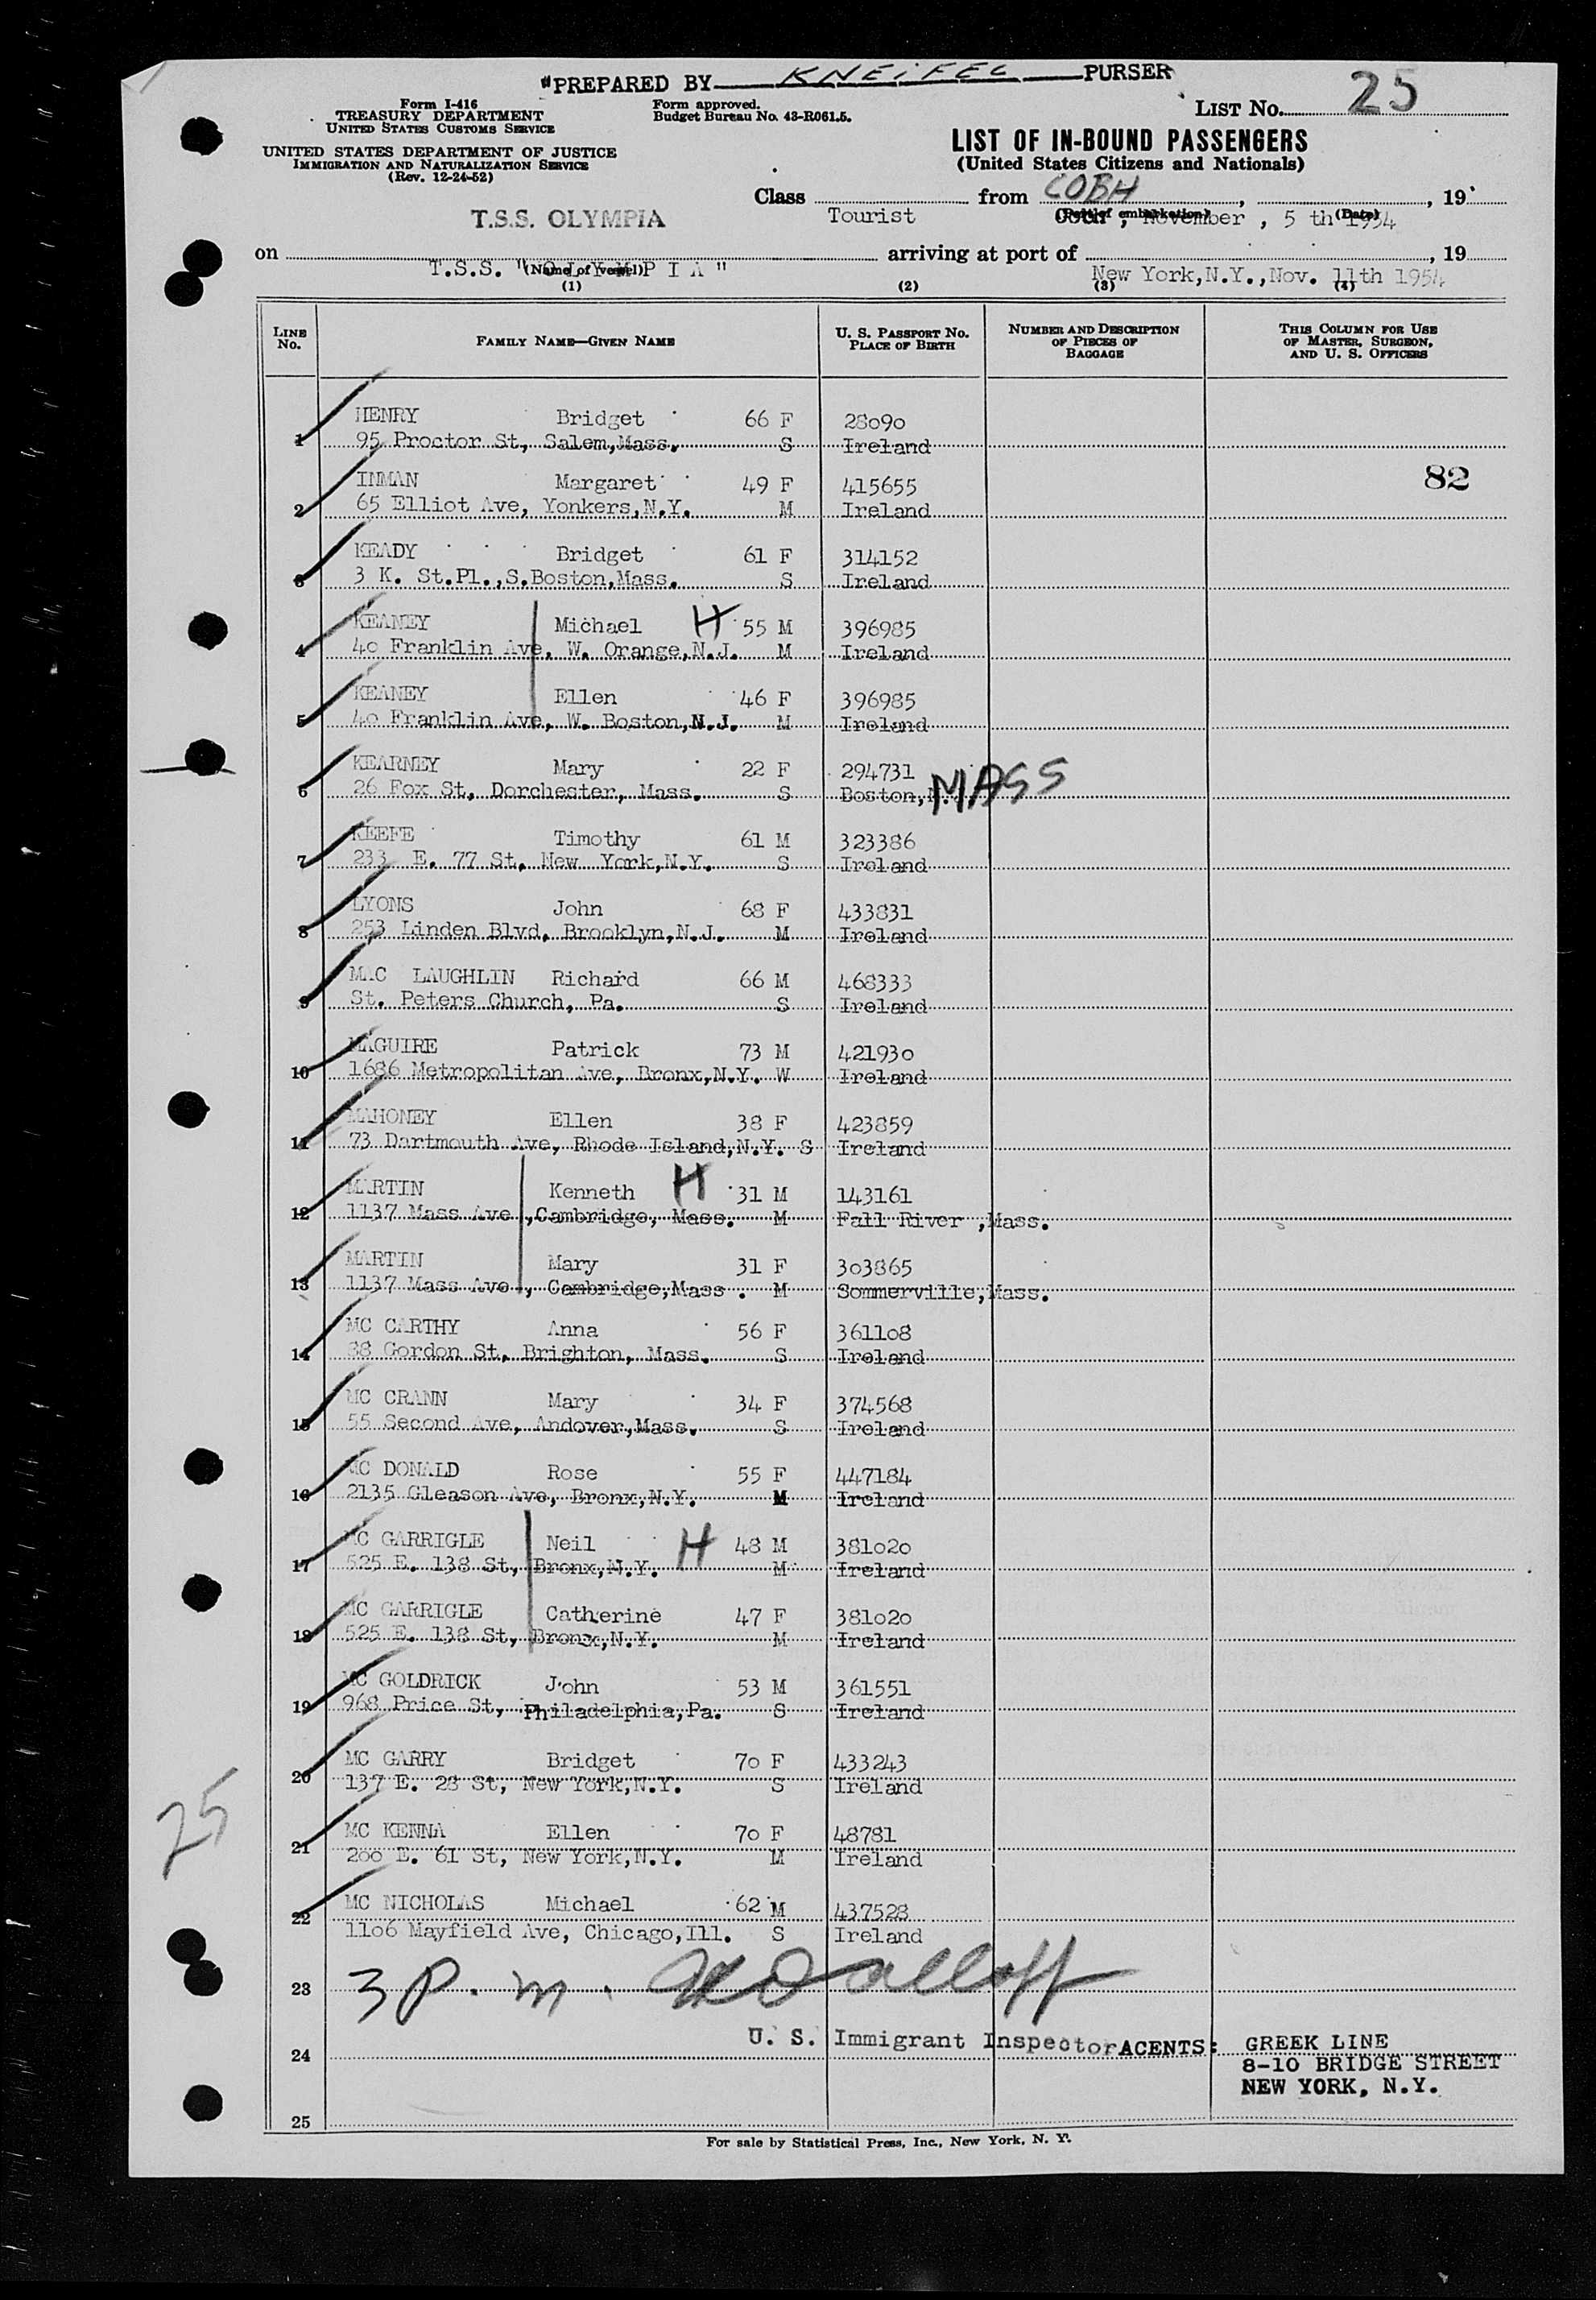 "PREPARED BY KNEIFEL PURSER
Form I-416
TREASURY DEPARTMENT
UNITED STATES CUSTOMS SERVICE
UNITED STATES DEPARTMENT OF JUSTICE
IMMIGRATION AND NATURALIZATION SERVICE
(Rev. 12-24-52)
Form approved.
Budget Bureau No. 43-R061.5.
LIST No. 25
LIST OF IN-BOUND PASSENGERS
(United States Citizens and Nationals)
Class from COBH, , 19
T.S.S. OLYMPIA Tourist (Port of embarkation) Cobh, November, 5 th (Date) 1954
on arriving at port of , 19
T.S.S. "O L Y M P I A" (Name of vessel) New York, N.Y., Nov. 11th 1954
(1) (2) (3) (4)
LINE No. FAMILY NAME—GIVEN NAME U. S. PASSPORT No. PLACE OF BIRTH NUMBER AND DESCRIPTION OF PIECES OF BAGGAGE THIS COLUMN FOR USE OF MASTER, SURGEON, AND U. S. OFFICERS
HENRY Bridget 66 F 28090
1 95 Proctor St, Salem,Mass. S Ireland
INMAN Margaret 49 F 415655 82
2 65 Elliot Ave, Yonkers,N.Y. M Ireland
KEADY Bridget 61 F 314152
3 3 K. St.Pl.,S.Boston,Mass. S Ireland
KEANEY Michael H 55 M 396985
4 40 Franklin Ave, W. Orange,N.J. M Ireland
KEANEY Ellen 46 F 396985
5 40 Franklin Ave, W. Boston,N.J. M Ireland
KEARNEY Mary 22 F 294731
6 26 Fox St, Dorchester, Mass. S Boston, MASS
KEEFE Timothy 61 M 323386
7 233 E. 77 St, New York,N.Y. S Ireland
LYONS John 68 F 433831
8 253 Linden Blvd, Brooklyn,N.J. M Ireland
MAC LAUGHLIN Richard 66 M 468333
9 St. Peters Church, Pa. S Ireland
MAGUIRE Patrick 73 M 421930
10 1686 Metropolitan Ave, Bronx,N.Y. W Ireland
MAHONEY Ellen 38 F 423859
11 73 Dartmouth Ave, Rhode Island,N.Y. S Ireland
MARTIN Kenneth H 31 M 143161
12 1137 Mass Ave ,Cambridge, Mass. M Fall River ,Mass.
MARTIN Mary 31 F 303865
13 1137 Mass Ave., Cambridge,Mass . M Sommerville,Mass.
MC CARTHY Anna 56 F 361108
14 38 Gordon St, Brighton, Mass. S Ireland
MC CRANN Mary 34 F 374568
15 55 Second Ave, Andover,Mass. S Ireland
MC DONALD Rose 55 F 447184
16 2135 Gleason Ave, Bronx,N.Y. M Ireland
MC GARRIGLE Neil H 48 M 381020
17 525 E. 138 St, Bronx,N.Y. M Ireland
MC GARRIGLE Catherine 47 F 381020
18 525 E. 138 St, Bronx,N.Y. M Ireland
MC GOLDRICK John 53 M 361551
19 968 Price St, Philadelphia,Pa. S Ireland
MC GARRY Bridget 70 F 433243
20 137 E. 28 St, New York,N.Y. S Ireland
25
MC KENNA Ellen 70 F 48781
21 200 E. 61 St, New York,N.Y. M Ireland
MC NICHOLAS Michael 62 M 437528
22 1106 Mayfield Ave, Chicago,Ill. S Ireland
23 3 P.m.
U. S. Immigrant Inspector AGENTS: GREEK LINE
24 8-10 BRIDGE STREET
NEW YORK, N.Y.
25
For sale by Statistical Press, Inc., New York, N. Y.